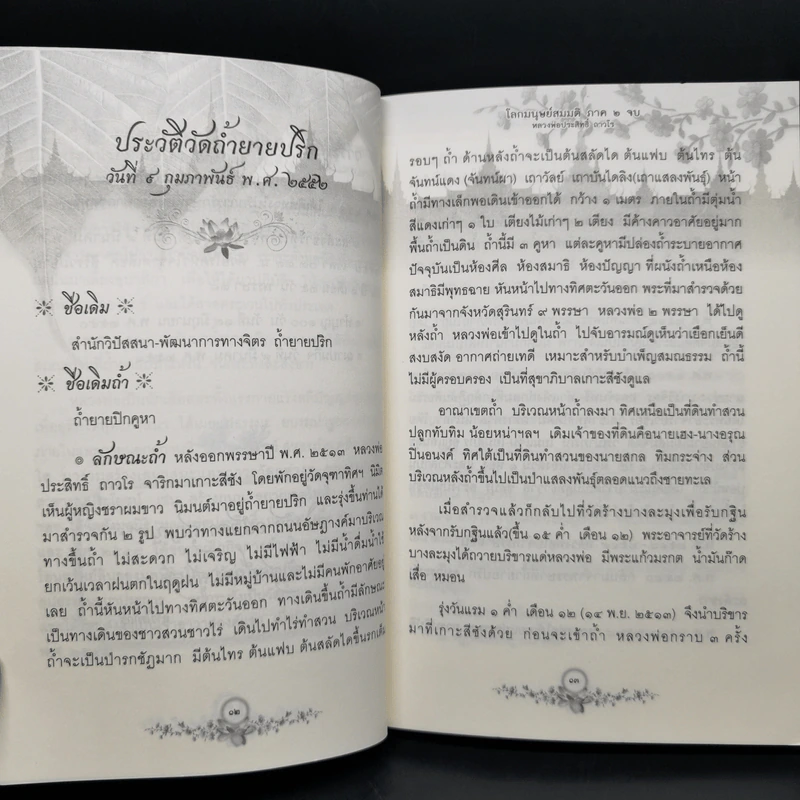 ประวัติวัดถ้ำยายปริก
วันที่ ๙ กุมภาพันธ์ พ.ศ. ๒๕๕๒
ชื่อเดิม
สำนักวิปัสสนา-พัฒนาการทางจิตร ถ้ำยายปริก
ชื่อเดิมถ้ำ
ถ้ำยายปิกคูหา
๏ ลักษณะถ้ำ หลังออกพรรษาปี พ.ศ. ๒๕๑๓ หลวงพ่อ
ประสิทธิ์ ถาวโร จาริกมาเกาะสีชัง โดยพักอยู่วัดจุฑาทิศฯ นิมิต
เห็นผู้หญิงชราผมขาว นิมนต์มาอยู่ถ้ำยายปริก และรุ่งขึ้นท่านได้
มาสำรวจกัน ๒ รูป พบว่าทางแยกจากถนนอัษฎางค์มาบริเวณ
ทางขึ้นถ้ำ ไม่สะดวก ไม่เจริญ ไม่มีไฟฟ้า ไม่มีน้ำดื่มน้ำใช้
ยกเว้นเวลาฝนตกในฤดูฝน ไม่มีหมู่บ้านและไม่มีคนพักอาศัยอยู่
เลย ถ้ำนี้หันหน้าไปทางทิศตะวันออก ทางเดินขึ้นถ้ำมีลักษณะ
เป็นทางเดินของชาวสวนชาวไร่ เดินไปทำไร่ทำสวน บริเวณหน้า
ถ้ำจะเป็นป่ารกชัฏมาก มีต้นไทร ต้นแฟบ ต้นสลัดไดขึ้นรกเต็ม
๑๒
โลกมนุษย์สมมติ ภาค ๒ จบ
หลวงพ่อประสิทธิ์ ถาวโร
รอบๆ ถ้ำ ด้านหลังถ้ำจะเป็นต้นสลัดได ต้นแฟบ ต้นไทร ต้น
จันทน์แดง (จันทน์ผา) เถาวัลย์ เถาบันไดลิง(เถาแสลงพันธุ์) หน้า
ถ้ำมีทางเล็กพอเดินเข้าออกได้ กว้าง ๑ เมตร ภายในถ้ำมีตุ่มน้ำ
สีแดงเก่าๆ ๑ ใบ เตียงไม้เก่าๆ ๒ เตียง มีค้างคาวอาศัยอยู่มาก
พื้นถ้ำเป็นดิน ถ้ำนี้มี ๓ คูหา แต่ละคูหามีปล่องถ้ำระบายอากาศ
ปัจจุบันเป็นห้องศีล ห้องสมาธิ ห้องปัญญา ที่ผนังถ้ำเหนือห้อง
สมาธิมีพุทธฉาย หันหน้าไปทางทิศตะวันออก พระที่มาสำรวจด้วย
กันมาจากจังหวัดสุรินทร์ ๙ พรรษา หลวงพ่อ ๒ พรรษา ได้ไปดู
หลังถ้ำ หลวงพ่อเข้าไปดูในถ้ำ ไปจับอารมณ์ดูเห็นว่าเยือกเย็นดี
สงบสงัด อากาศถ่ายเทดี เหมาะสำหรับบำเพ็ญสมณธรรม ถ้ำนี้
ไม่มีผู้ครอบครอง เป็นที่สุขาภิบาลเกาะสีชังดูแล
อาณาเขตถ้ำ บริเวณหน้าถ้ำลงมา ทิศเหนือเป็นที่ดินทำสวน
ปลูกทับทิม น้อยหน่าฯลฯ เดิมเจ้าของที่ดินคือนายเฮง-นางอรุณ
ปิ่นอนงค์ ทิศใต้เป็นที่ดินทำสวนของนายสกล ทิมกระจ่าง ส่วน
บริเวณหลังถ้ำขึ้นไปเป็นป่าแสลงพันธุ์ตลอดแนวถึงชายทะเล
เมื่อสำรวจแล้วก็กลับไปที่วัดร้างบางละมุงเพื่อรับกฐิน
หลังจากรับกฐินแล้ว(ขึ้น ๑๕ ค่ำ เดือน ๑๒) พระอาจารย์ที่วัดร้าง
บางละมุงได้ถวายบริขารแด่หลวงพ่อ มีพระแก้วมรกต น้ำมันก๊าด
เสื่อ หมอน
รุ่งวันแรม ๑ ค่ำ เดือน ๑๒ (๑๔ พ.ย. ๒๕๑๓) จึงนำบริขาร
มาที่เกาะสีชังด้วย ก่อนจะเข้าถ้ำ หลวงพ่อกราบ ๓ ครั้ง
๑๓